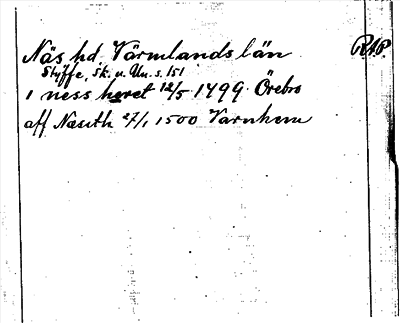 Näs hd. Värmlands län RAP.
Styffe, Sk. u. Un. s. 151
i ness heret 12/5 1499 Örebro
aff Næsith 27/1 1500 Varnhem